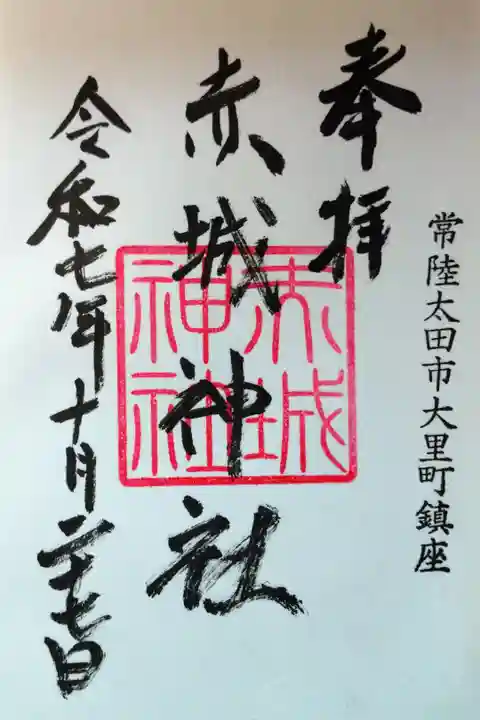 常陸太田市大里町鎮座
奉拝
赤城神社
赤城神社
令和七年十月二十七日